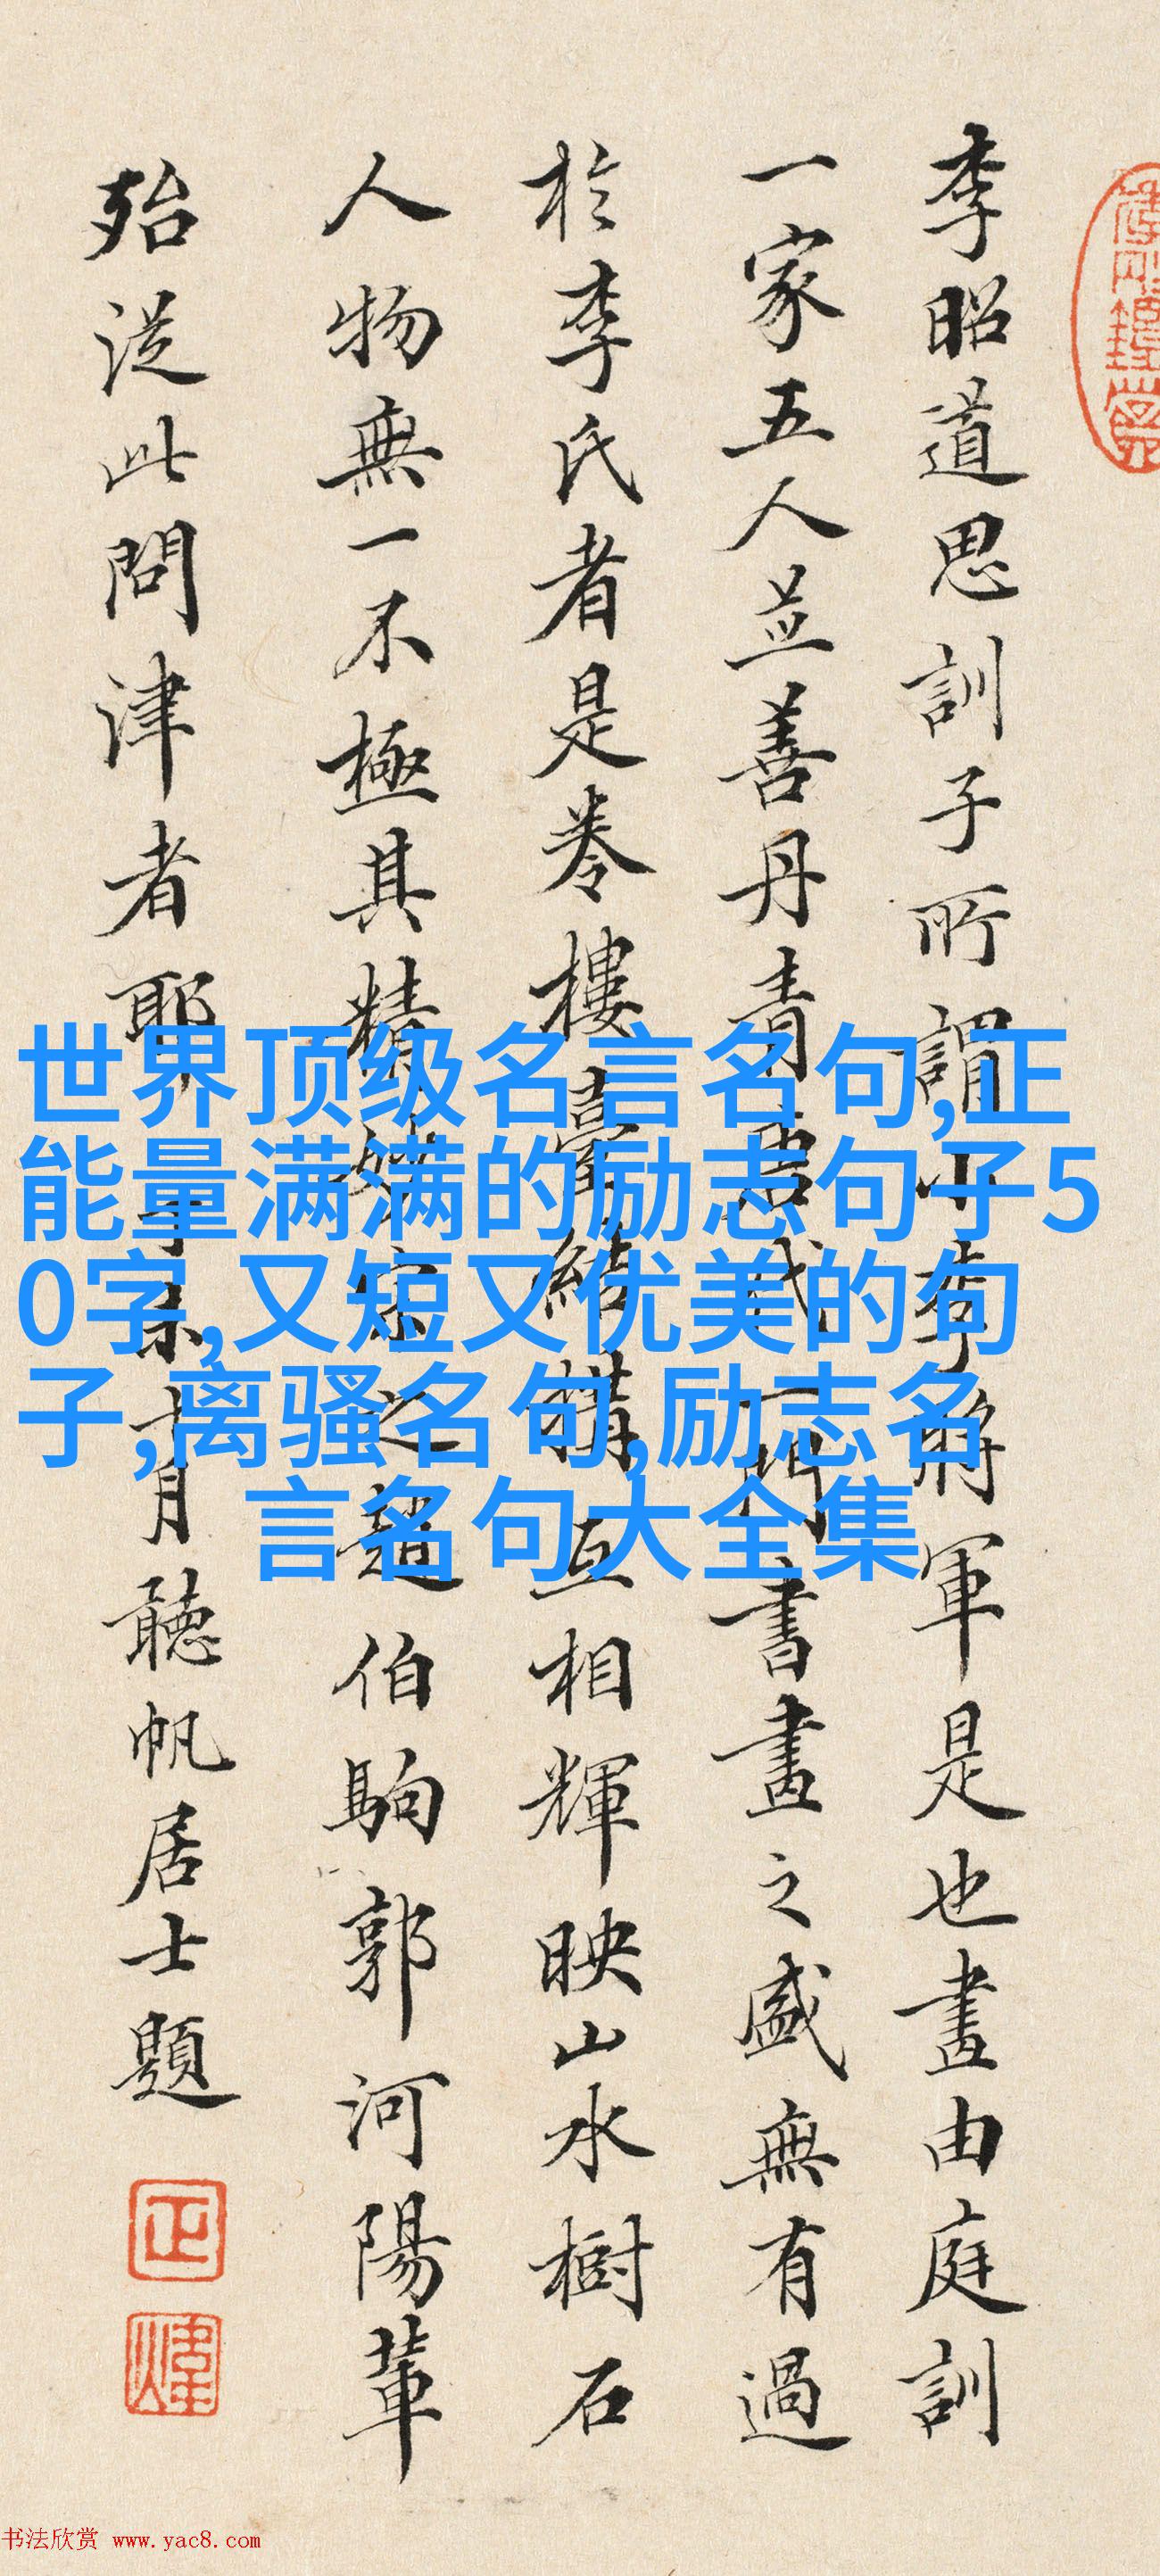 李昭道思訓子所謂小李將軍是也畫由庭訓
一家五人並善丹青書代一門書畫之盛無有過
於李氏者是卷樓臺結構互相輝映山水樹石
人物無一不極其精妙宗之趙伯駒郭河陽輩
殆從此問津者耶 月聽帆居士題
世界顶级名言名句,正
能量满满的励志句子5
0字,又短又优美的句
子,离骚名句,励志名
言名句大全集
书法欣赏 www.yac8.com